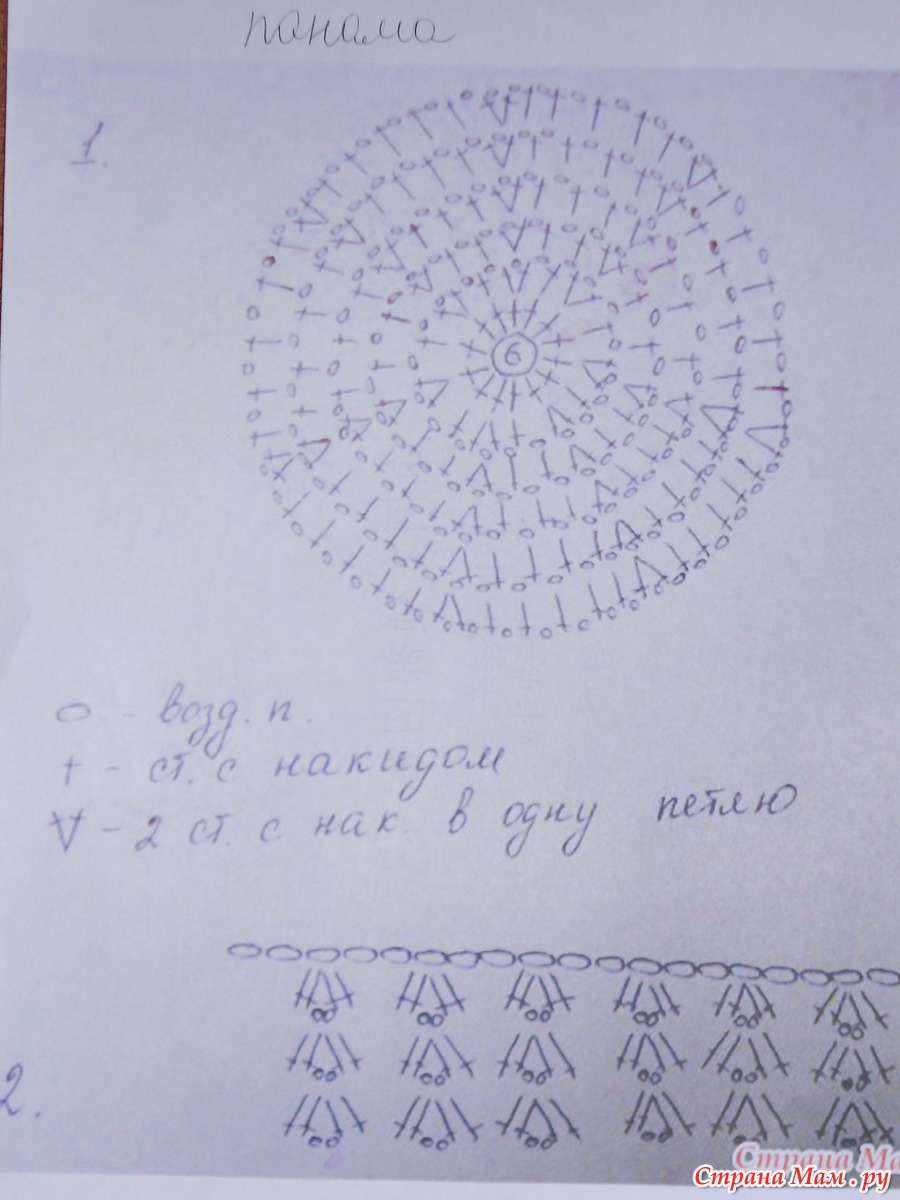 панама
1.
6
о - возд. п.
† - ст. с накидом
V - 2 ст. с нак. в одну петлю
2.
Страна Ма
Страна Мам.ру